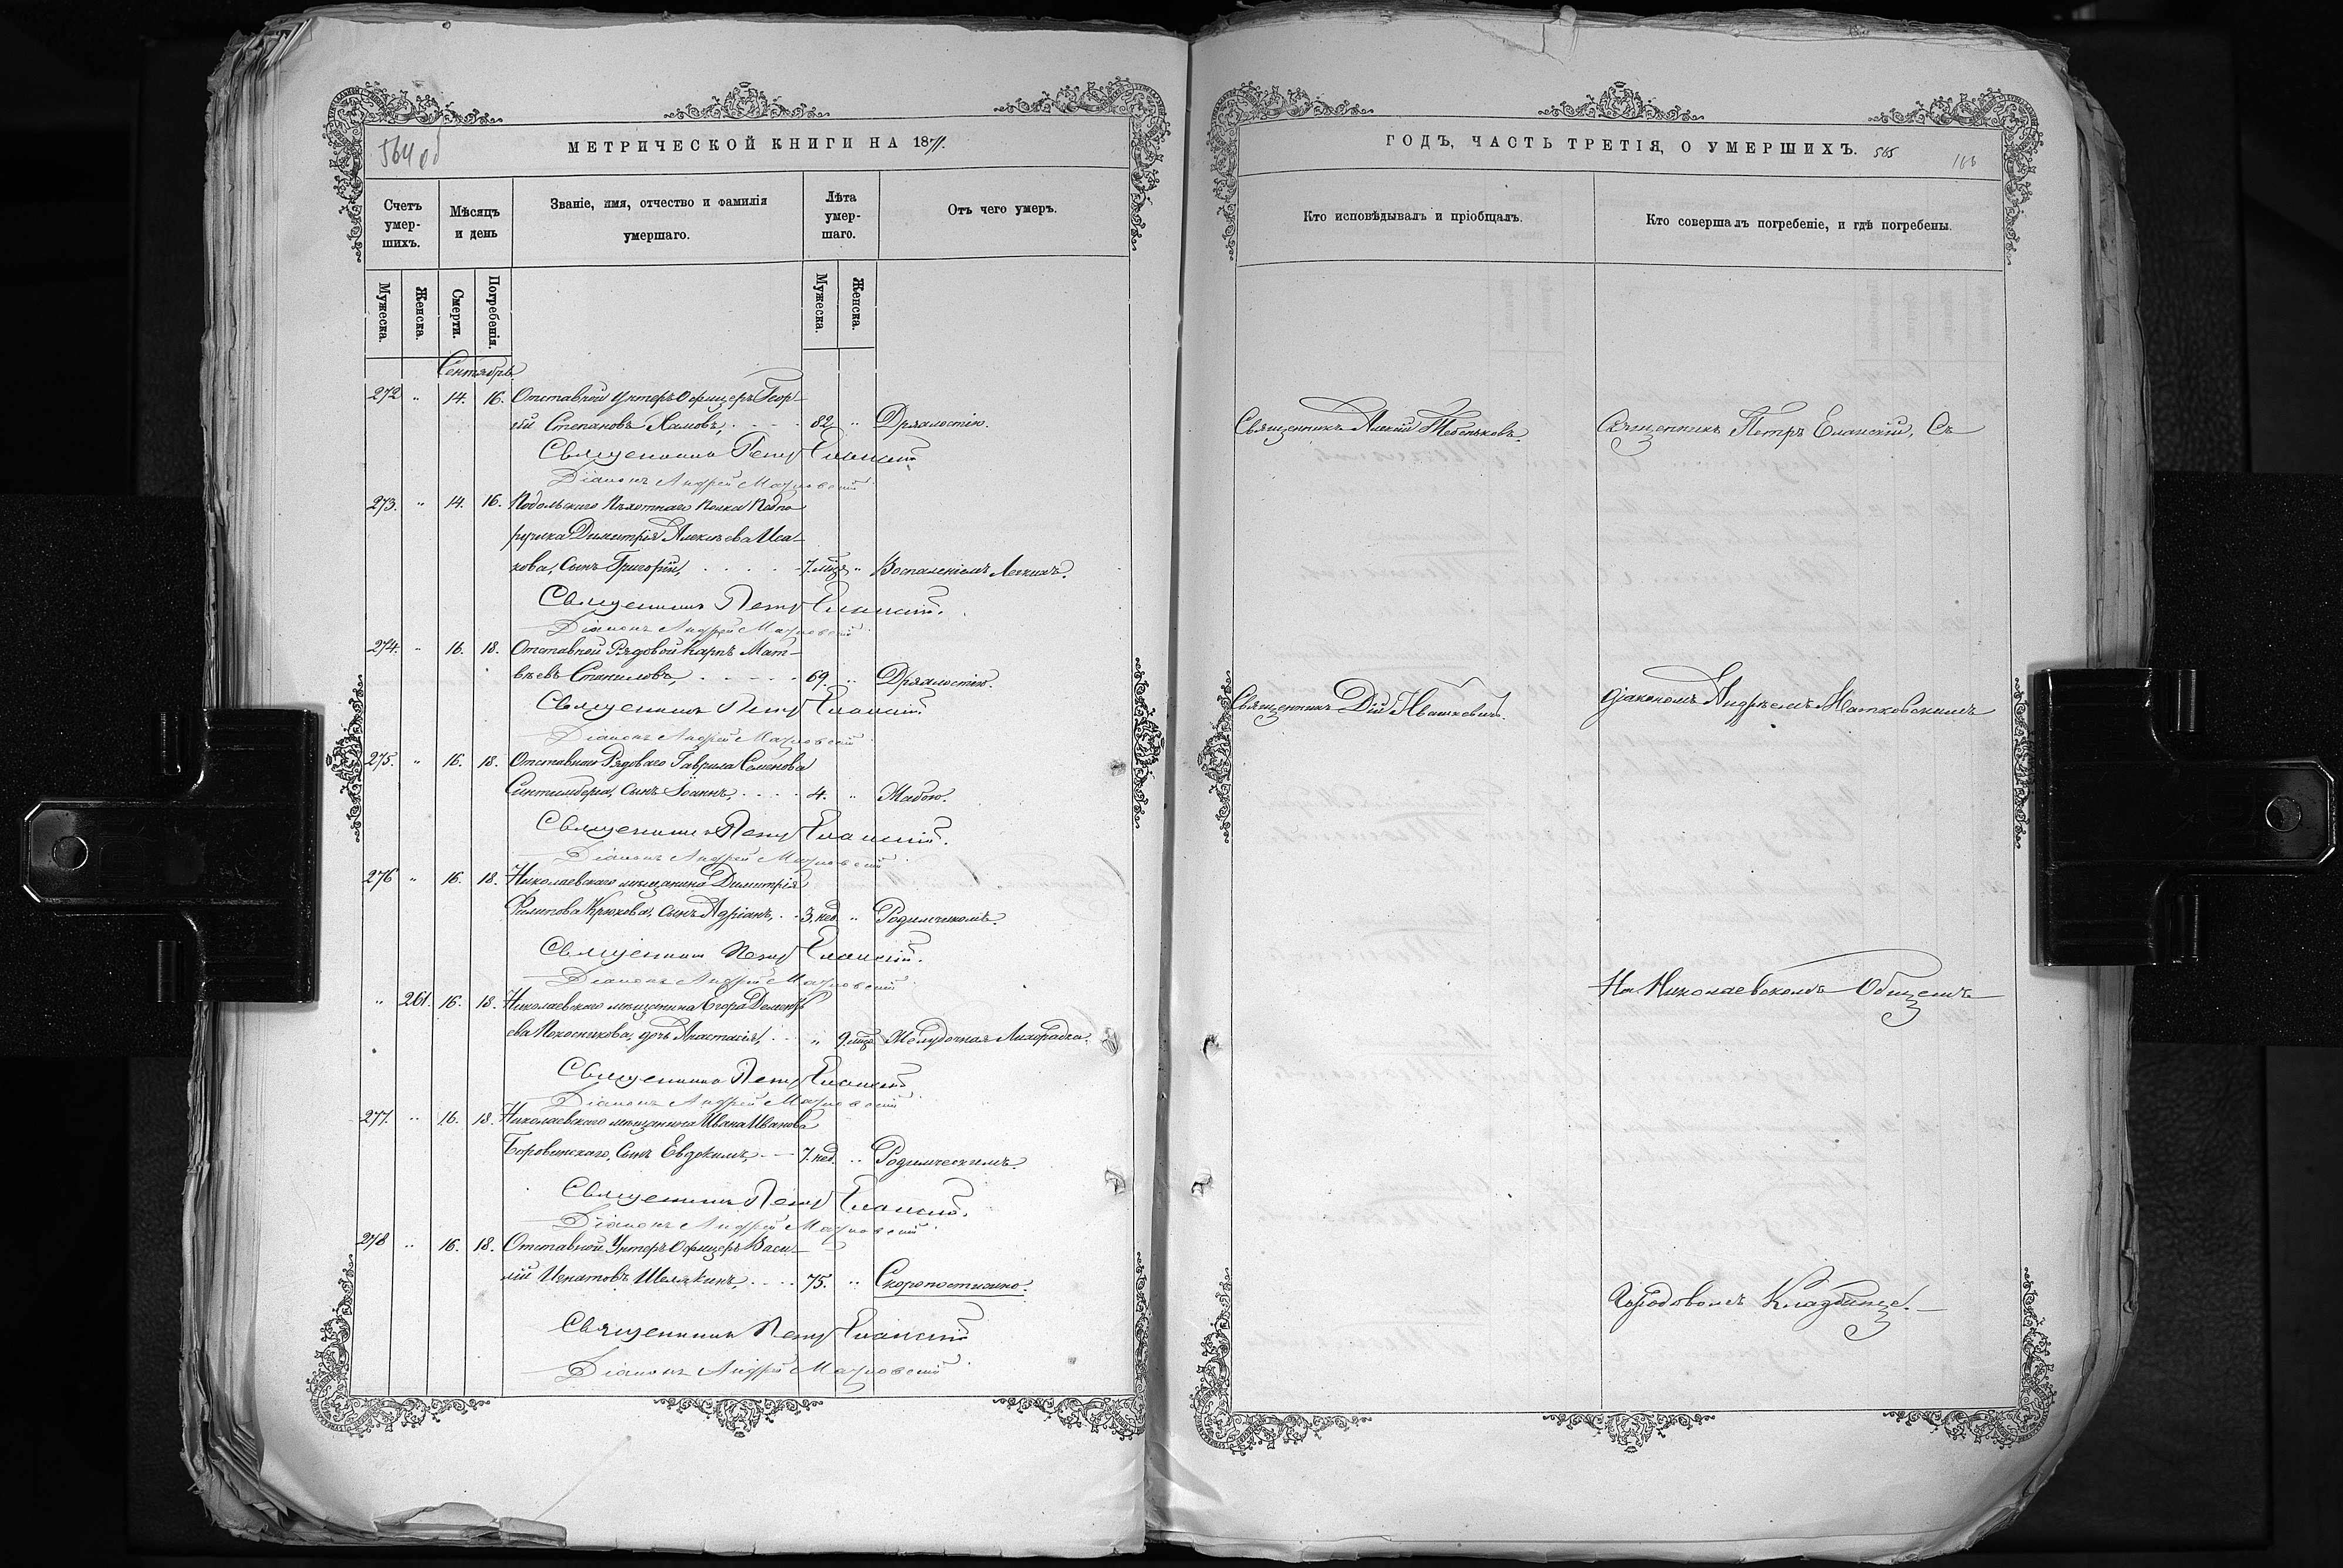 564 об
МЕТРИЧЕСКОЙ КНИГИ НА 1877.
Счетъ умер-шихъ.
Мѣсяцъ и день
Званіе, имя, отчество и фамилія умершаго.
Лѣта умер-шаго.
Отъ чего умеръ.
Мужеска.
Женска.
Смерти.
Погребенія.
Мужеска.
Женска.
Сентябрь
272 " 14. 16. Отставной Унтеръ Офицеръ Геор-
гій Степановъ Хамовъ, 82, " Дряхлостію.
Священникъ Петръ Еланскій
Діаконъ Андрей Матковскій
273. " 14. 16. Подольскаго Пѣхотнаго Полка Подпо
ручика Димитрія Алексѣева Иса-
кова, Сынъ Григорій, 7. мѣс. " Воспаленіемъ Легкихъ.
Священникъ Петръ Еланскій.
Діаконъ Андрей Матковскій
274. " 16. 18. Отставной Рядовой Карпъ Мат-
вѣевъ 69. " Дряхлостію.
Священникъ Петръ Еланскій
Діаконъ Андрей Матковскій
275. " 16. 18. Отставного Рядоваго Гаврила Семенова
Сынъ Іоаннъ, 4. " Жабою.
Священникъ Петръ Еланскій.
Діаконъ Андрей Матковскій
276 " 16. 18. Николаевскаго мѣщанина Димитрія
Филипова Крюкова, Сынъ Адріанъ, 3. нед. " Родимчикомъ.
Священникъ Петръ Еланскій.
Діаконъ Андрей Матковскій
" 261. 16. 18. Николаевскаго мѣщанина Егора Дементь
ева дочь Анастасія, " 9. мѣс. Желудочная Лихорадка.
Священникъ Петръ Еланскій
Діаконъ Андрей Матковскій
277. " 16. 18. Николаевскаго мѣщанина Ивана Иванова
Боровинскаго, Сынъ Евдокимъ, 7. нед. "
Священникъ Петръ Еланскій.
Діаконъ Андрей Матковскій
278 " 16. 18. Отставной Унтеръ Офицеръ Васи-
лій Игнатовъ Шелякинъ, 75. " Скоропостижно.
Священникъ Петръ Еланскій
Діаконъ Андрей Матковскій
ГОДЪ, ЧАСТЬ ТРЕТІЯ, О УМЕРШИХЪ. 565
166
Кто исповѣдывалъ и пріобщалъ.
Кто совершалъ погребеніе, и гдѣ погребены.
Священникъ Алексій
Священникъ Петръ Еланскій, Съ
Священникъ Дій Ивашкевичъ.
Діакономъ Андреемъ Матковскимъ
На Николаевскомъ Общемъ
Городовомъ Кладбище.